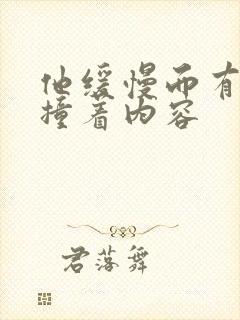 他缓慢而有
撞着内容
君落舞